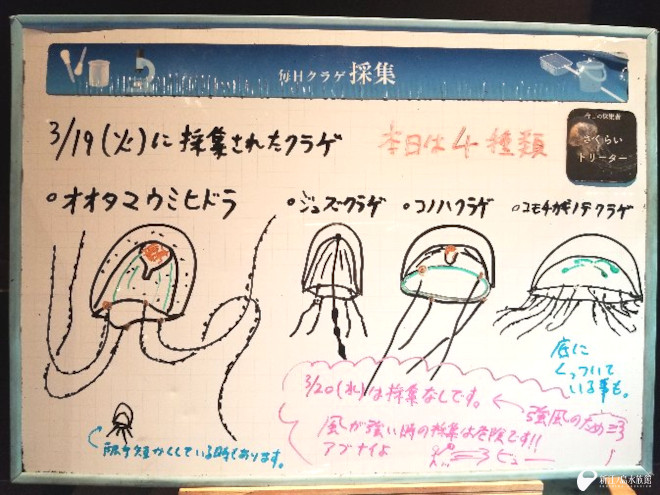 毎日クラゲ採集
3/19(火)に採集されたクラゲ 本日は4種類
さくらい
トリーター
○オオタマウミヒドラ ○ジュズクラゲ ○コノハクラゲ ○コモチカギノテクラゲ
底に
くっついて
いる事も。
3/20(水)は採集なしです。 ← 強風のため
風が強い時の採集は危険です!!
アブナイよ ヒュー
触手短かくしている時もあります。
新江ノ島水族館